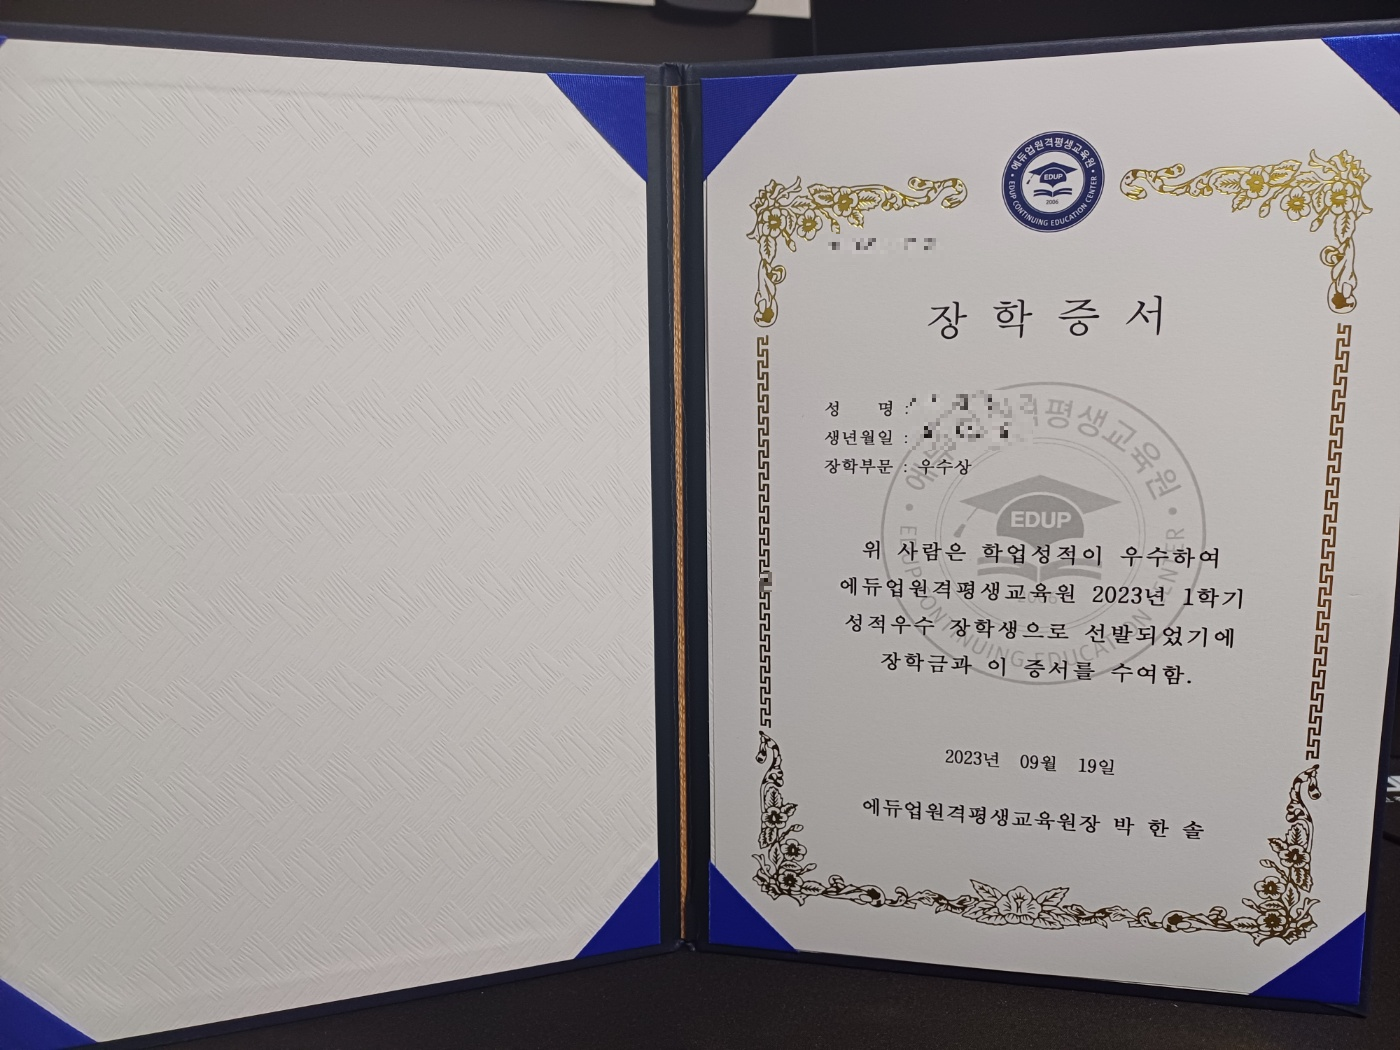 에듀업원격평생교육원
EDUP
2006
EDUP CONTINUING EDUCATION CENTER
장 학 증 서
성 명 :
생년월일 :
장학부문 : 우수상
EDUP
위 사람은 학업성적이 우수하여
에듀업원격평생교육원 2023년 1학기
성적우수 장학생으로 선발되었기에
장학금과 이 증서를 수여함.
2023년 09월 19일
에듀업원격평생교육원장 박 한 솔